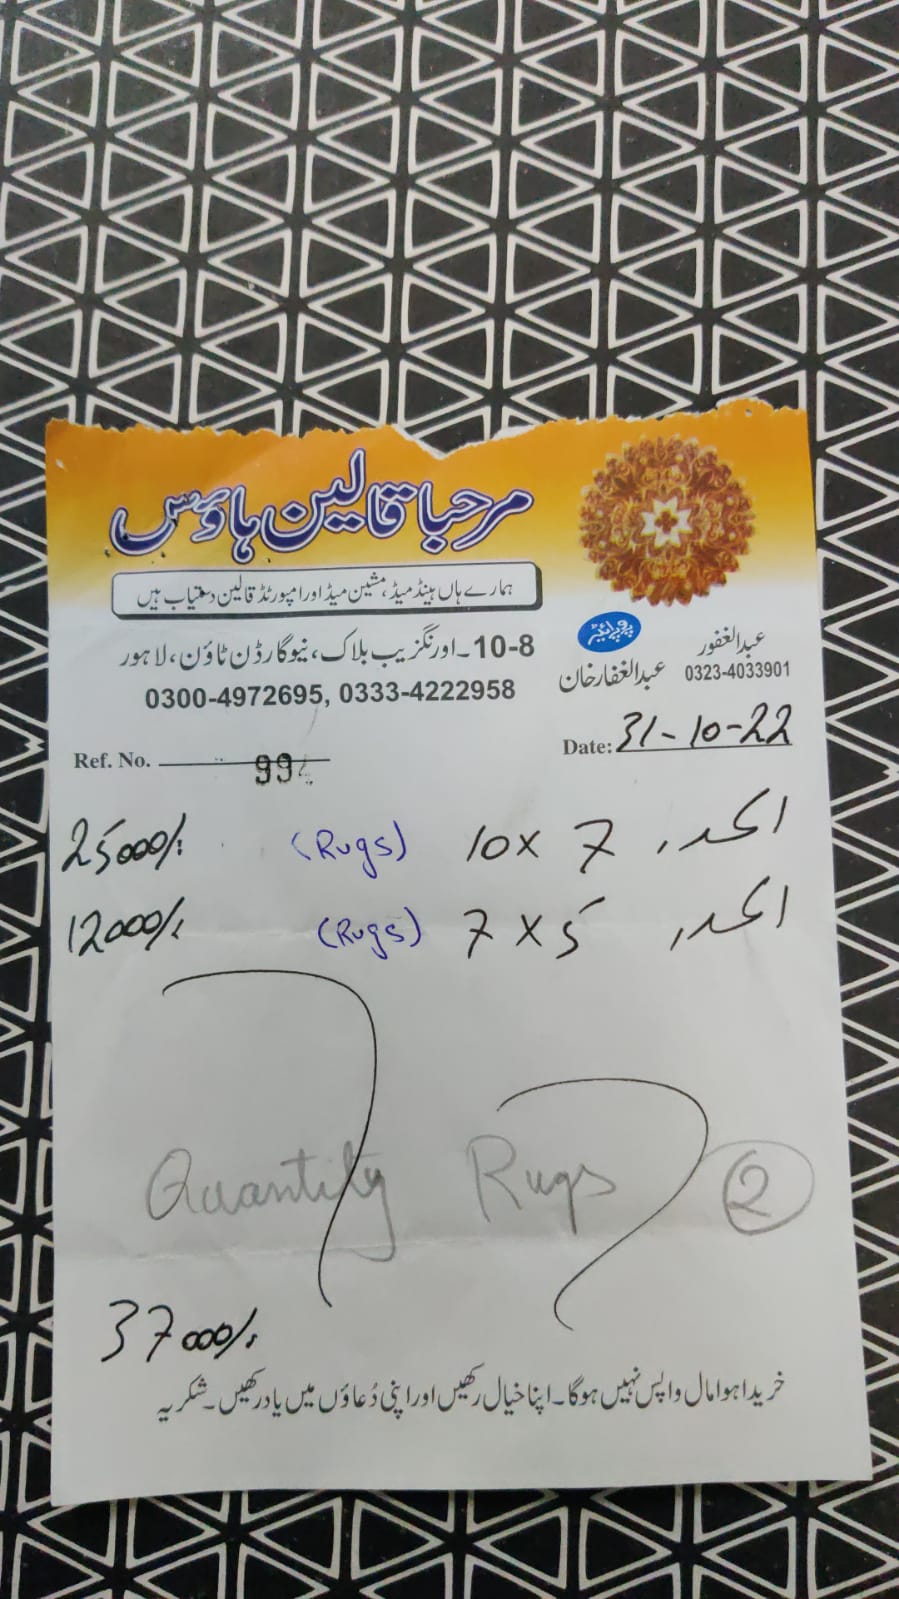 مرحبا قالین ہاؤس
ہمارے ہاں ہینڈ میڈ، مشین میڈ اور امپورٹڈ قالین دستیاب ہیں
10-8۔اورنگزیب بلاک، نیو گارڈن ٹاؤن، لاہور
0300-4972695, 0333-4222958
پروپرائیٹر
عبدالغفار خان
عبدالغفور
0323-4033901
Ref. No. 99
Date: 31-10-22
10 x 7 (Rugs) 25000/.
7 x 5 (Rugs) 12000/.
Quantity Rugs 2
37000/.
خریدا ہوا مال واپس نہیں ہوگا۔ اپنا خیال رکھیں اور اپنی دُعاؤں میں یاد رکھیں۔ شکریہ